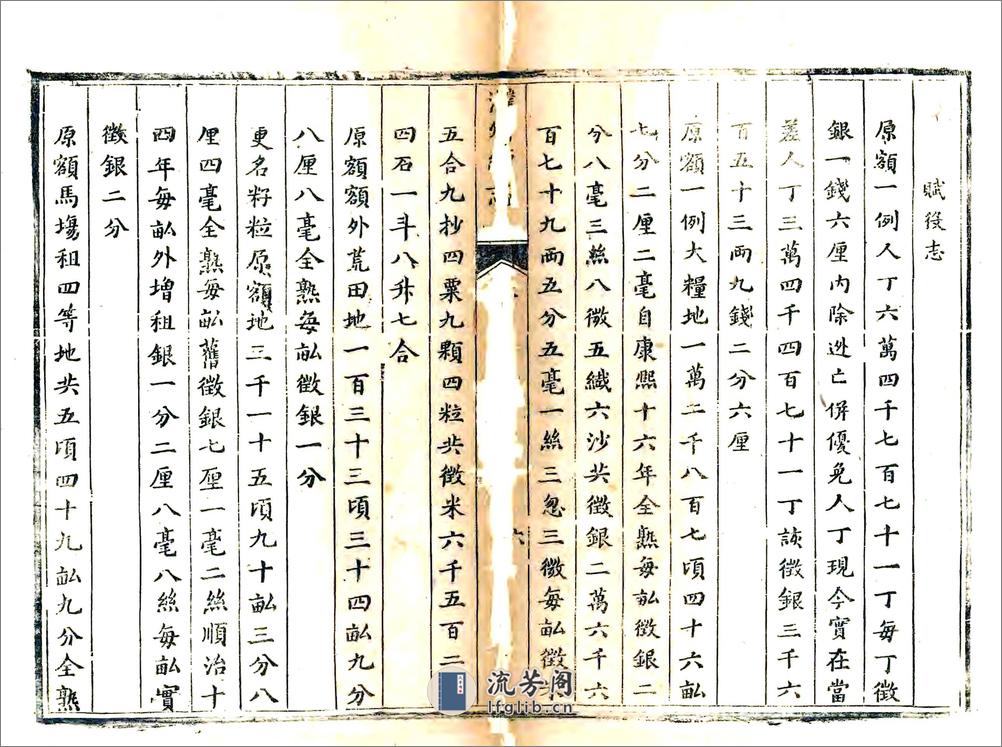 賦役志
原額一例人丁六萬四千七百七十一丁每丁徵
銀一錢六厘內除迯亡併優免人丁現今實在當
差人丁三萬四千四百七十一丁該徵銀三千六
百五十三兩九錢二分六厘
原額一例大糧地一萬二千八百七頃四十六畝
七分二厘二毫自康熙十六年全熟每畝徵銀二
分八毫三絲八微五纖六沙共徵銀二萬六千六
百七十九兩五分五毫一絲三忽三微每畝徵米
六
五合九抄四粟九顆四粒共徵米六千五百二十
四石一斗八升七合
原額額外荒田地一百三十三頃三十四畝九分
八厘八毫全熟每畝徵銀一分
更名籽粒原額地三千一十五頃九十畝三分八
厘四毫全熟每畝舊徵銀七厘一毫二絲順治十
四年每畝外增租銀一分二厘八毫八絲每畝實
徵銀二分
原額馬塲租四等地共五頃四十九畝九分全熟
流芳阁
lfglib.cn